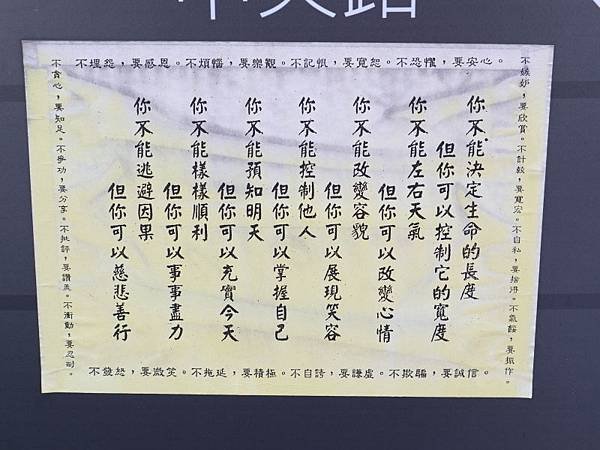 不埋怨，要感恩。不煩惱，要樂觀。不記恨，要寬恕。不恐懼，要安心。
不嫉妒，要欣賞。不計較，要寬宏。不自私，要捨得。不氣餒，要振作。
你不能決定生命的長度
但你可以控制它的寬度
你不能左右天氣
但你可以改變心情
你不能改變容貌
但你可以展現笑容
你不能控制他人
但你可以掌握自己
你不能預知明天
但你可以充實今天
你不能樣樣順利
但你可以事事盡力
你不能逃避因果
但你可以慈悲善行
不貪心，要知足。不爭功，要分享。不批評，要讚美。不衝動，要忍耐。
不發怒，要微笑。不拖延，要積極。不自誇，要謙虛。不欺騙，要誠信。